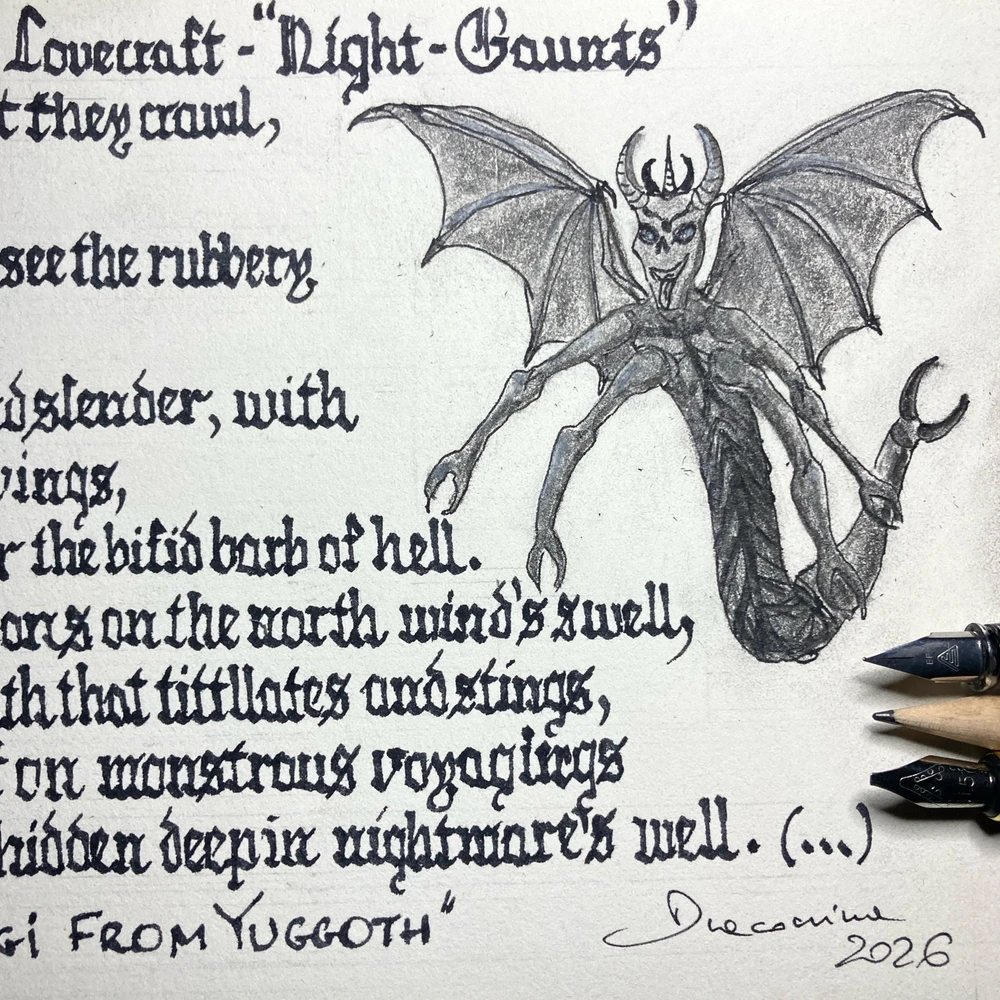 Lovecraft - "Night-Gaunts"
t they crawl,
see the rubbery
d slender, with
wings,
r the bifid barb of hell.
ons on the north wind's swell,
th that tittllates and stings,
f on monstrous voyagiings
hidden deep in nightmare's well. (...)
gi FROM YUGGOTH"
2026